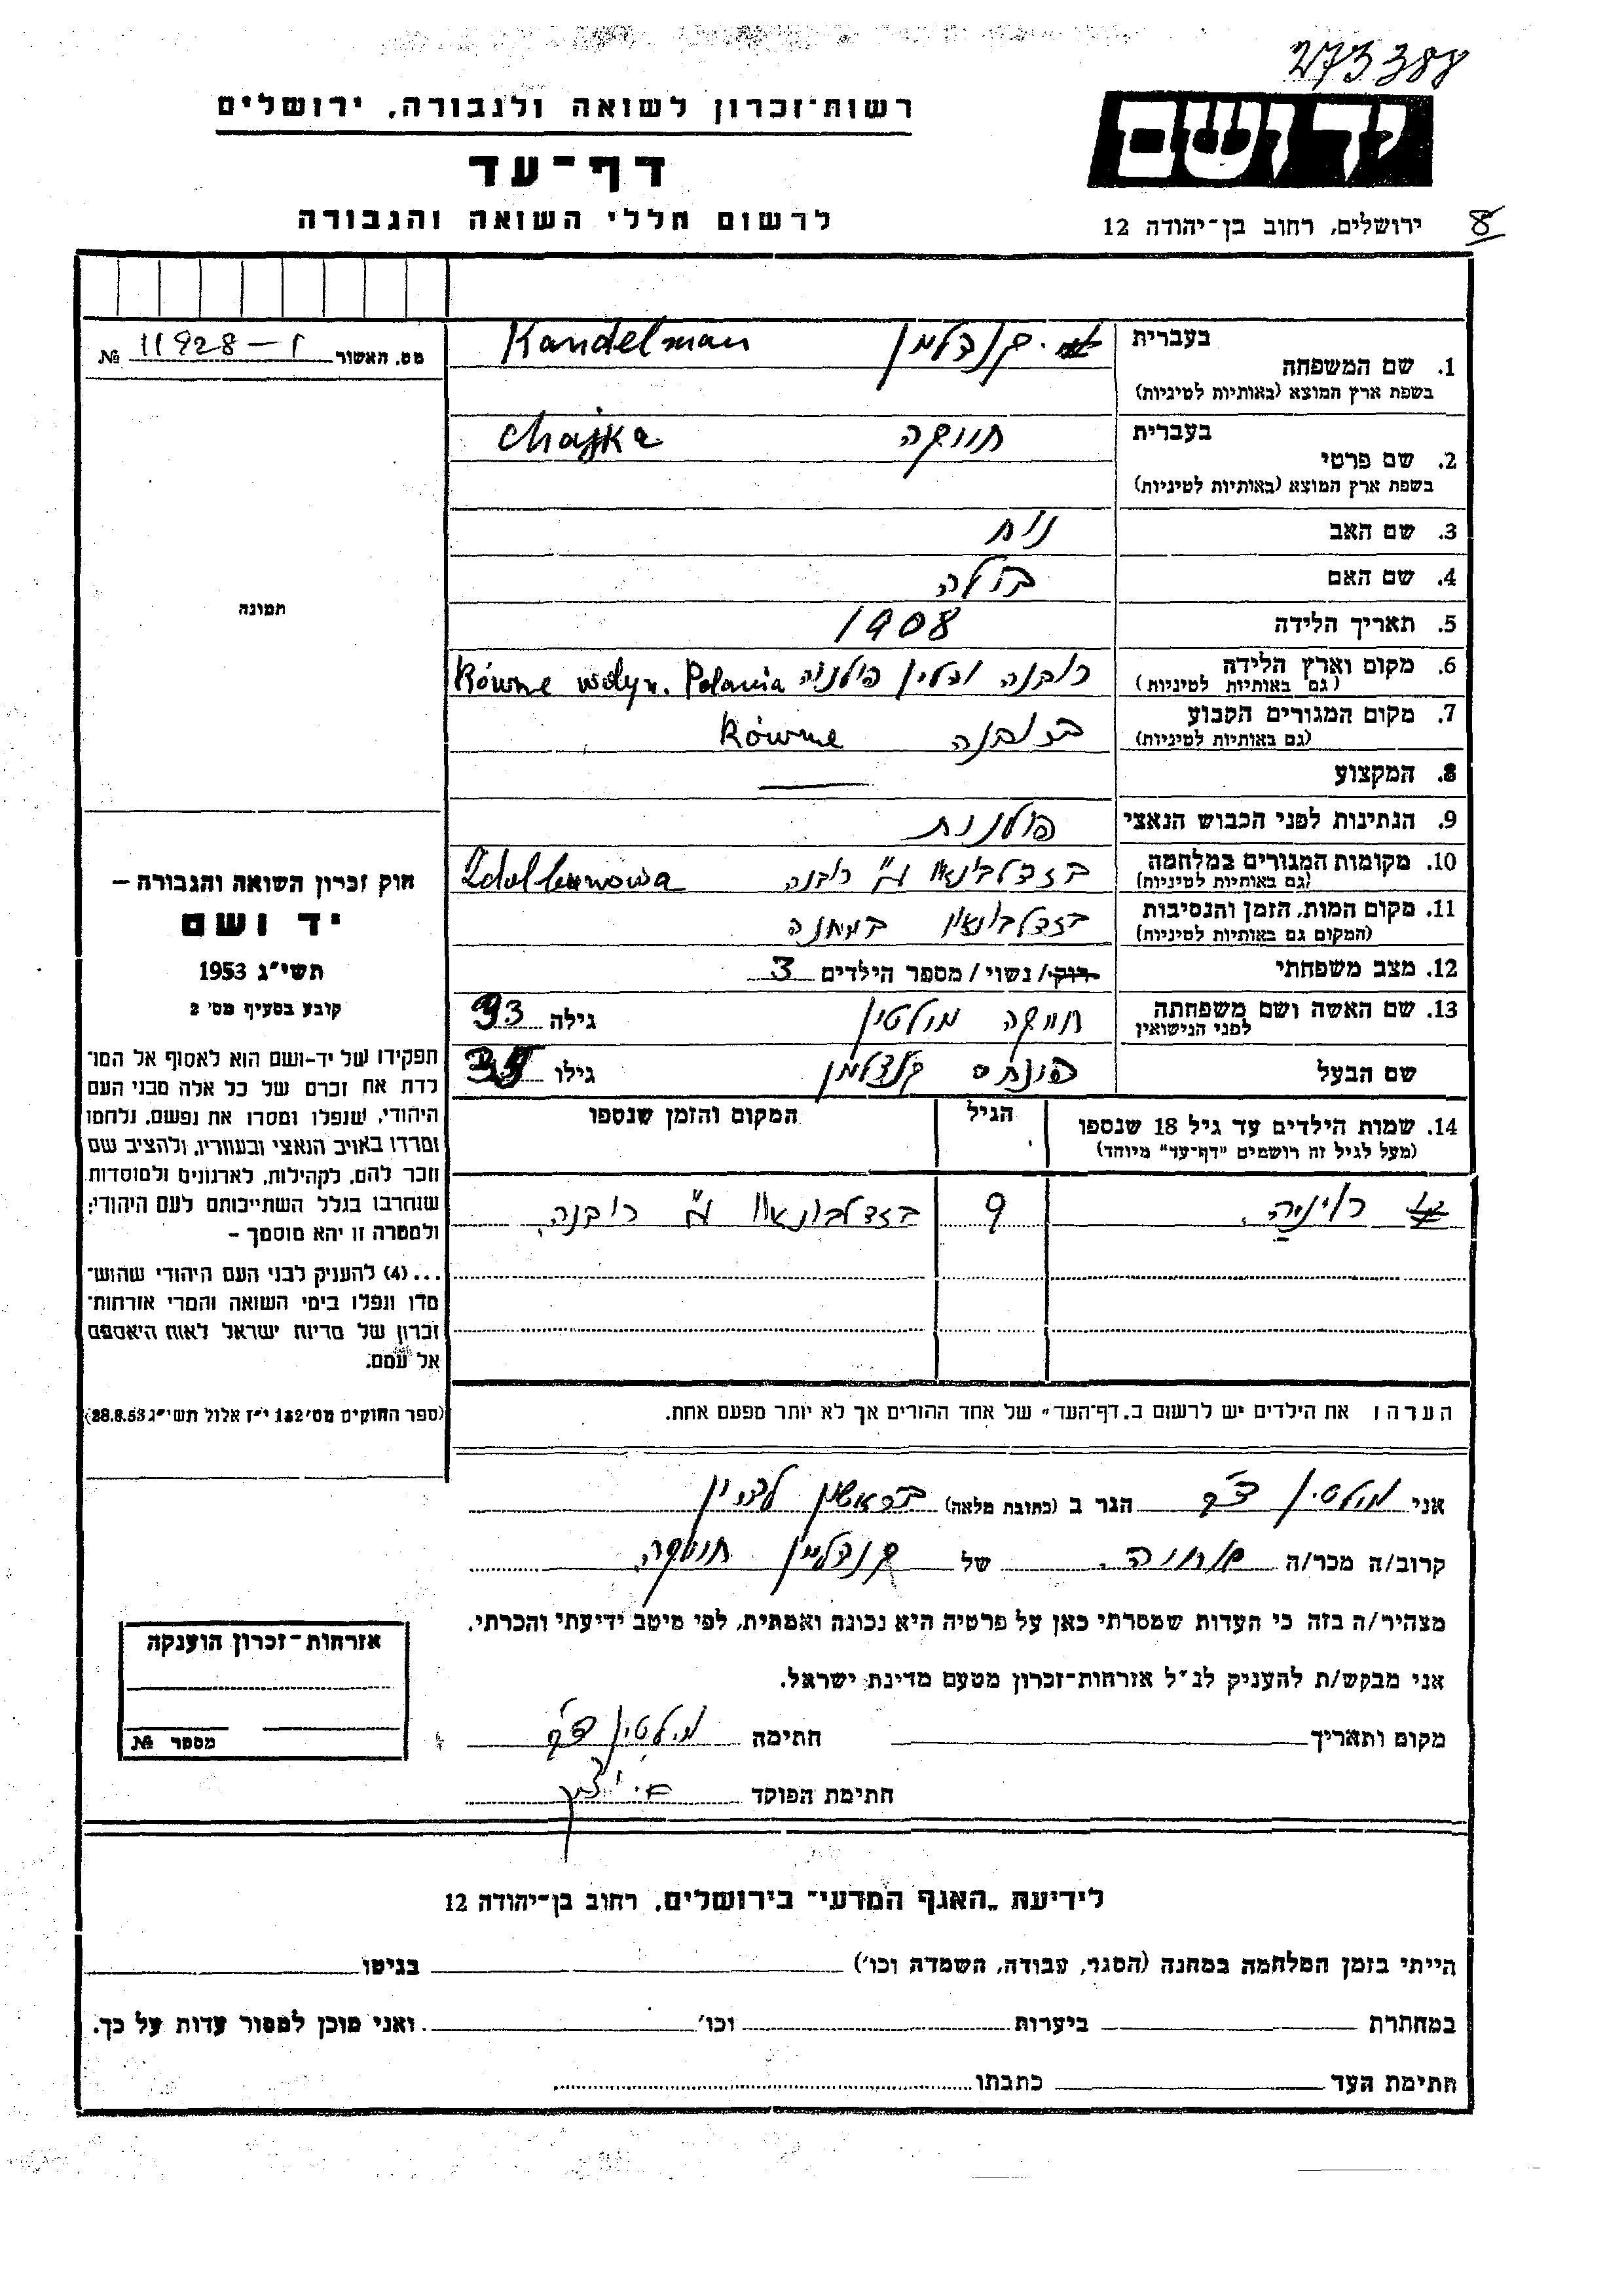 273388
רשות־זכרון לשואה ולגבורה, ירושלים
יד ושם
דף־עד
לרשום חללי השואה והגבורה
ירושלים, רחוב בן־יהודה 12
8
מס. האשור 11928-1 №
תמונה
חוק זכרון השואה והגבורה –
יד ושם
תשי״ג 1953
קובע בסעיף מס׳ 2
תפקידו של יד-ושם הוא לאסוף אל המו־
לדת את זכרם של כל אלה מבני העם
היהודי, שנפלו ומסרו את נפשם, נלחמו
ומרדו באויב הנאצי ובעוזריו, ולהציב שם
וזכר להם, לקהילות, לארגונים ולמוסדות
שנחרבו בגלל השתייכותם לעם היהודי;
ולמטרה זו יהא מוסמך –
...(4) להעניק לבני העם היהודי שהוש־
מדו ונפלו בימי השואה והמרי אזרחות־
זכרון של מדינת ישראל לאות היאספם
אל עמם.
(ספר החוקים מס׳ 132 י״ז אלול תשי״ג 28.8.53)
בעברית
1. שם המשפחה קנדלמן Kandelman
בשפת ארץ המוצא (באותיות לטיניות)
בעברית
2. שם פרטי חייקה Chajka
בשפת ארץ המוצא (באותיות לטיניות)
3. שם האב נוח
4. שם האם ביילה
5. תאריך הלידה 1908
6. מקום וארץ הלידה רובנה ווהלין פולניה Równe wołyn. Polania
(גם באותיות לטיניות)
7. מקום המגורים הקבוע ברובנה Równe
(גם באותיות לטיניות)
8. המקצוע
9. הנתינות לפני הכבוש הנאצי פולנית
10. מקומות המגורים במלחמה בזדלבונאוו ע״י רובנה
(גם באותיות לטיניות)
11. מקום המות, הזמן והנסיבות בזדלבונאוו במחנה
(המקום גם באותיות לטיניות)
12. מצב משפחתי רוק/נשוי/ מספר הילדים 3
13. שם האשה ושם משפחתה חייקה מולטין גילה 33
לפני הנישואין
שם הבעל פינחס קנדלמן גילו 35
14. שמות הילדים עד גיל 18 שנספו הגיל המקום והזמן שנספו
(מעל לגיל זה רושמים ״דף־עד״ מיוחד)
9 בזדלבונאוו ע״י רובנה
הערה: את הילדים יש לרשום ב„דף־העד״ של אחד ההורים אך לא יותר מפעם אחת.
אני מולטין הגר ב (כתובת מלאה) בראשון לציון
קרוב/ה מכר/ה אחיה של קנדלמן חייקה
מצהיר/ה בזה כי העדות שמסרתי כאן על פרטיה היא נכונה ואמתית, לפי מיטב ידיעתי והכרתי.
אני מבקש/ת להעניק לנ״ל אזרחות־זכרון מטעם מדינת ישראל.
מקום ותאריך חתימה מולטין
חתימת הפוקד
אזרחות־זכרון הוענקה
מספר №
לידיעת „האגף המדעי״ בירושלים, רחוב בן־יהודה 12
הייתי בזמן המלחמה במחנה (הסגר, עבודה, השמדה וכו׳) בגיטו
במחתרת ביערות וכו׳ ואני מוכן למסור עדות על כך.
חתימת העד כתבתו